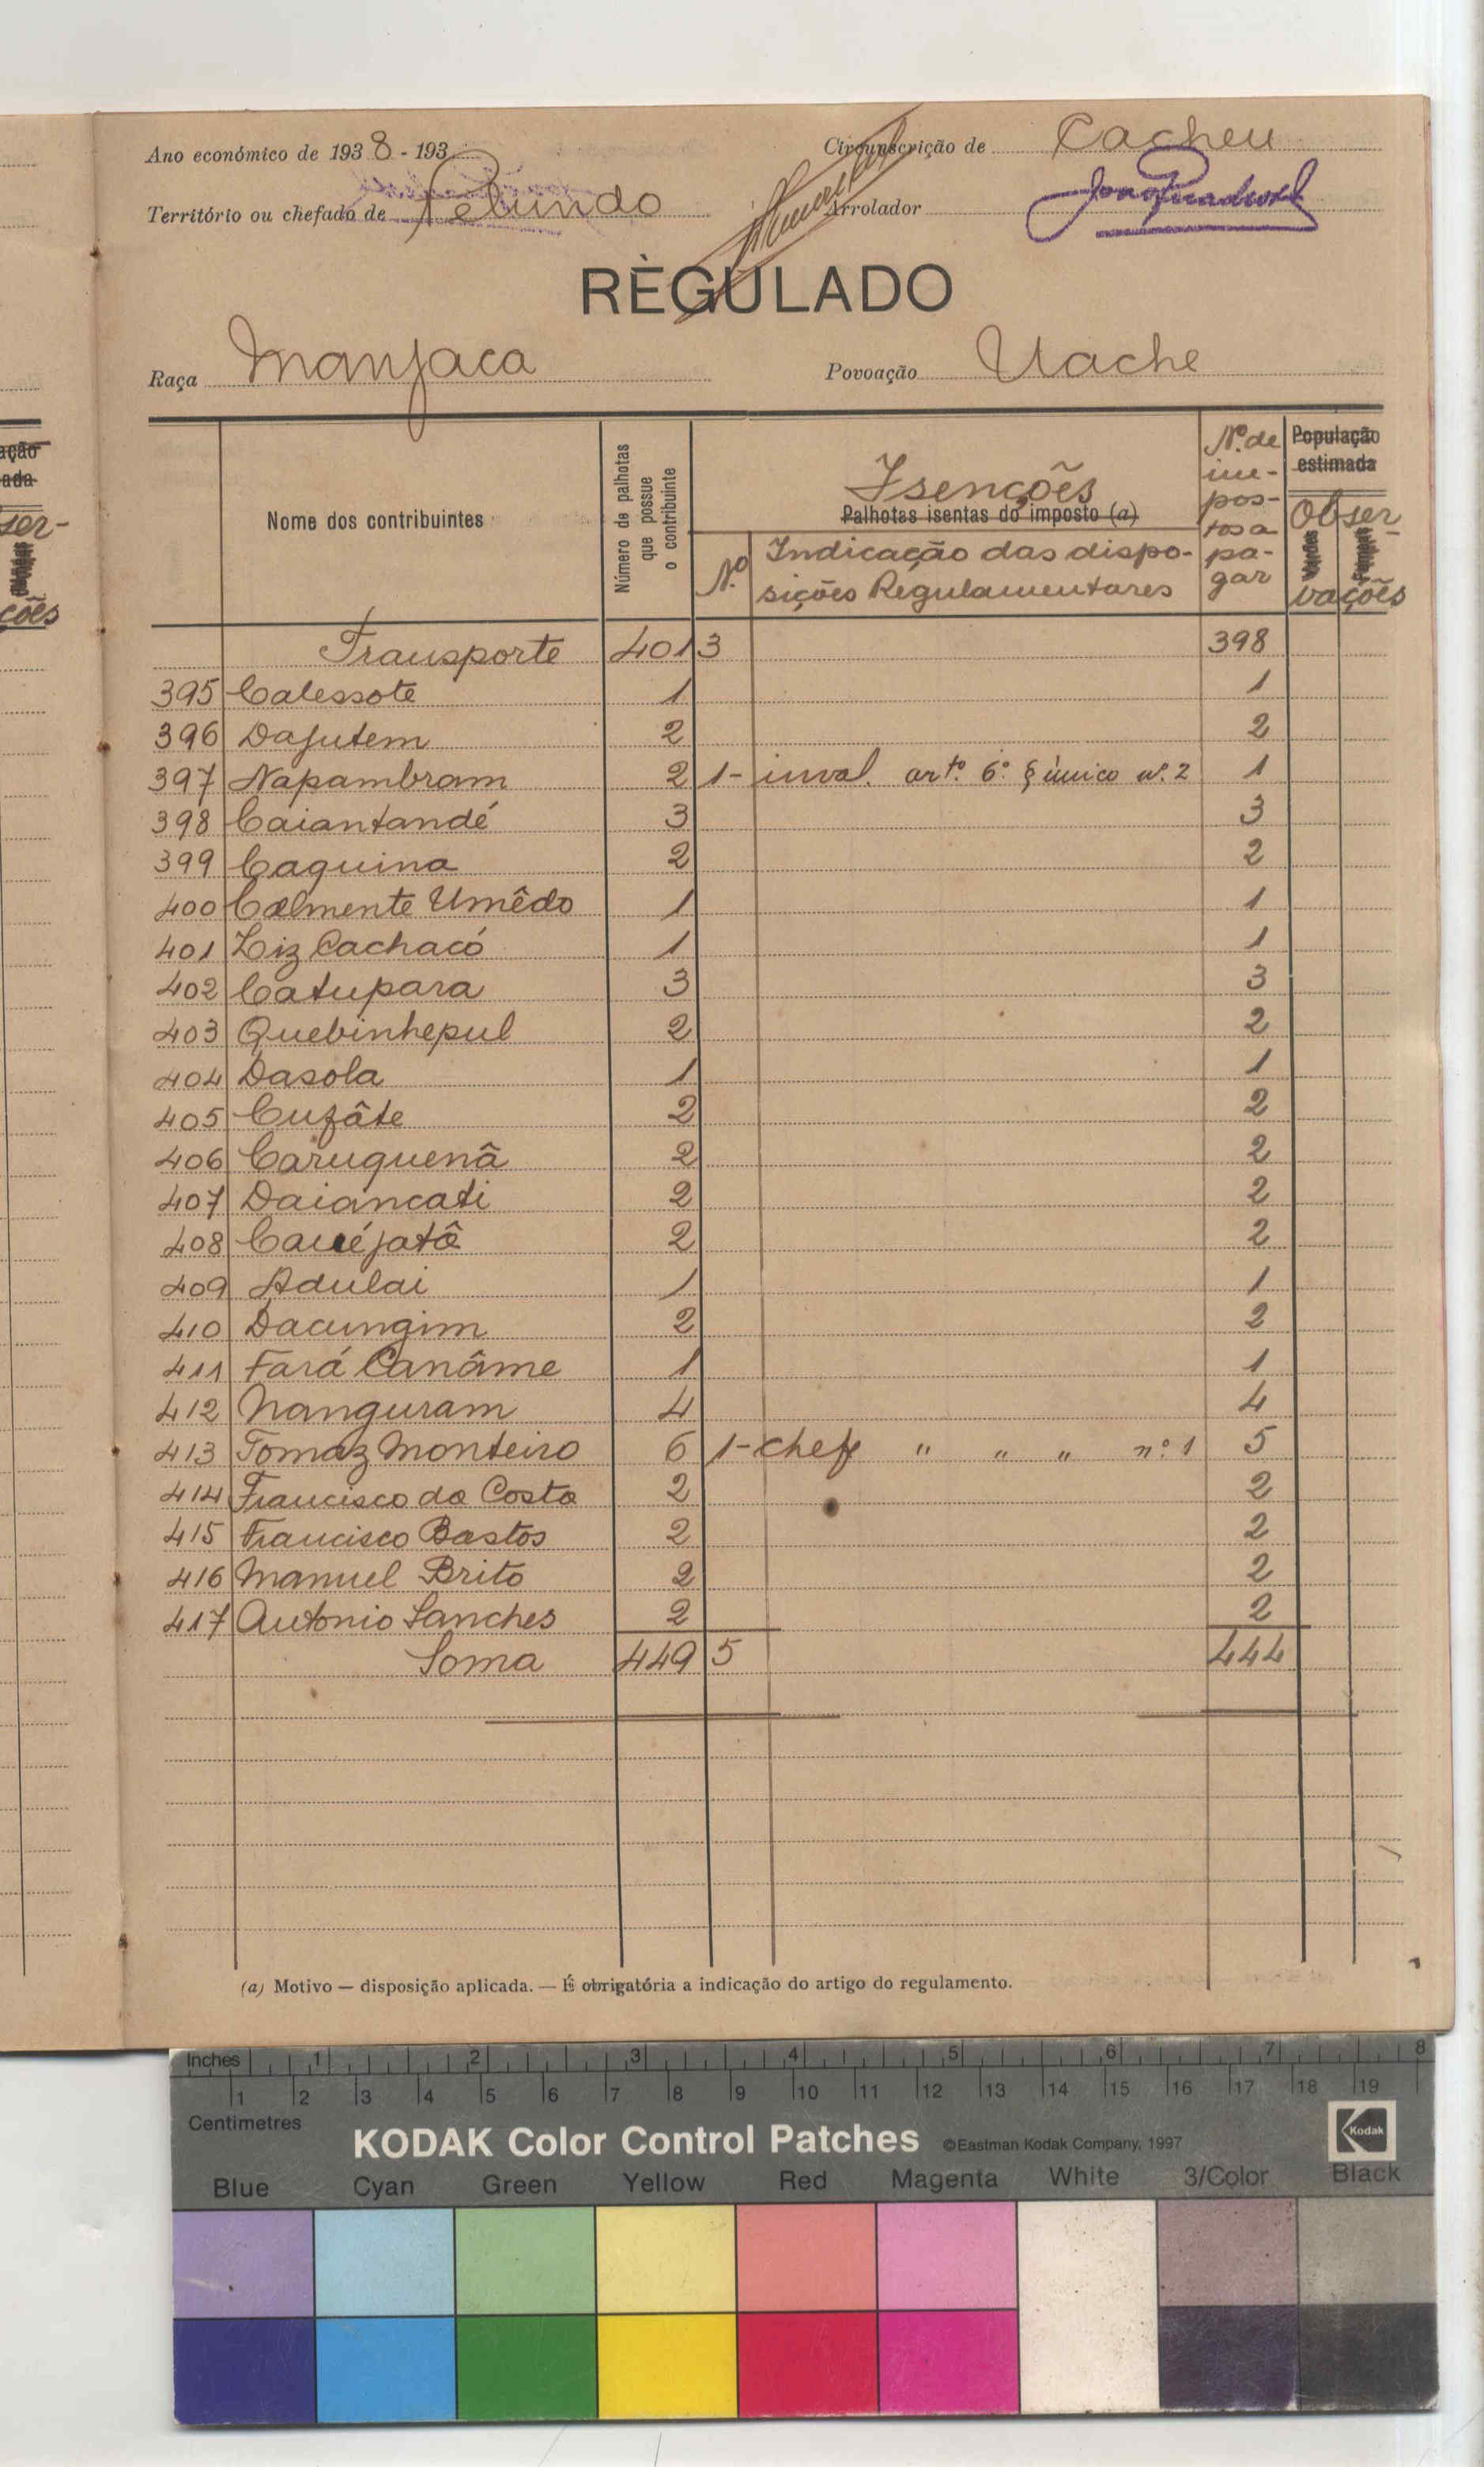 Ano económico de 1938 - 193
Circunscrição de Cacheu
Território ou chefado de Pelundo
Arrolador
RÈGULADO
Raça Manjaca
Povoação Uache
Nome dos contribuintes
Número de palhotas que possue o contribuinte
Isenções
Palhotas isentas do imposto (a)
N.º
Indicação das dispo-
sições Regulamentares
N.º de
im-
pos-
tos a
pa-
gar
População
estimada
Obser-
vações
Transporte 401 3 398
395 Calessote 1 1
396 Dajutem 2 2
397 Napambram 2 1- inval. artº. 6º. § único nº. 2 1
398 Caiantandé 3 3
399 Caquina 2 2
400 Calmente Umêdo 1 1
401 Liz Cachacó 1 1
402 Catupara 3 3
403 Quebinhepul 2 2
404 Dasola 1 1
405 Cufâte 2 2
406 Caruquenâ 2 2
407 Daiancati 2 2
408 Cauéjatâ 2 2
409 Adulai 1 1
410 Dacungim 2 2
411 Fará Canâme 1 1
412 Nanguram 4 4
413 Tomaz Monteiro 6 1- chefe " " " nº. 1 5
414 Francisco da Costa 2 2
415 Francisco Bastos 2 2
416 Manuel Brito 2 2
417 Antonio Sanches 2 2
Soma 449 5 444
(a) Motivo — disposição aplicada. — É obrigatória a indicação do artigo do regulamento.
ação
ada
ser-
ções
Inches 1 2 3 4 5 6 7 8
1 2 3 4 5 6 7 8 9 10 11 12 13 14 15 16 17 18 19
Centimetres
KODAK Color Control Patches ©Eastman Kodak Company, 1997 Kodak
Blue Cyan Green Yellow Red Magenta White 3/Color Black